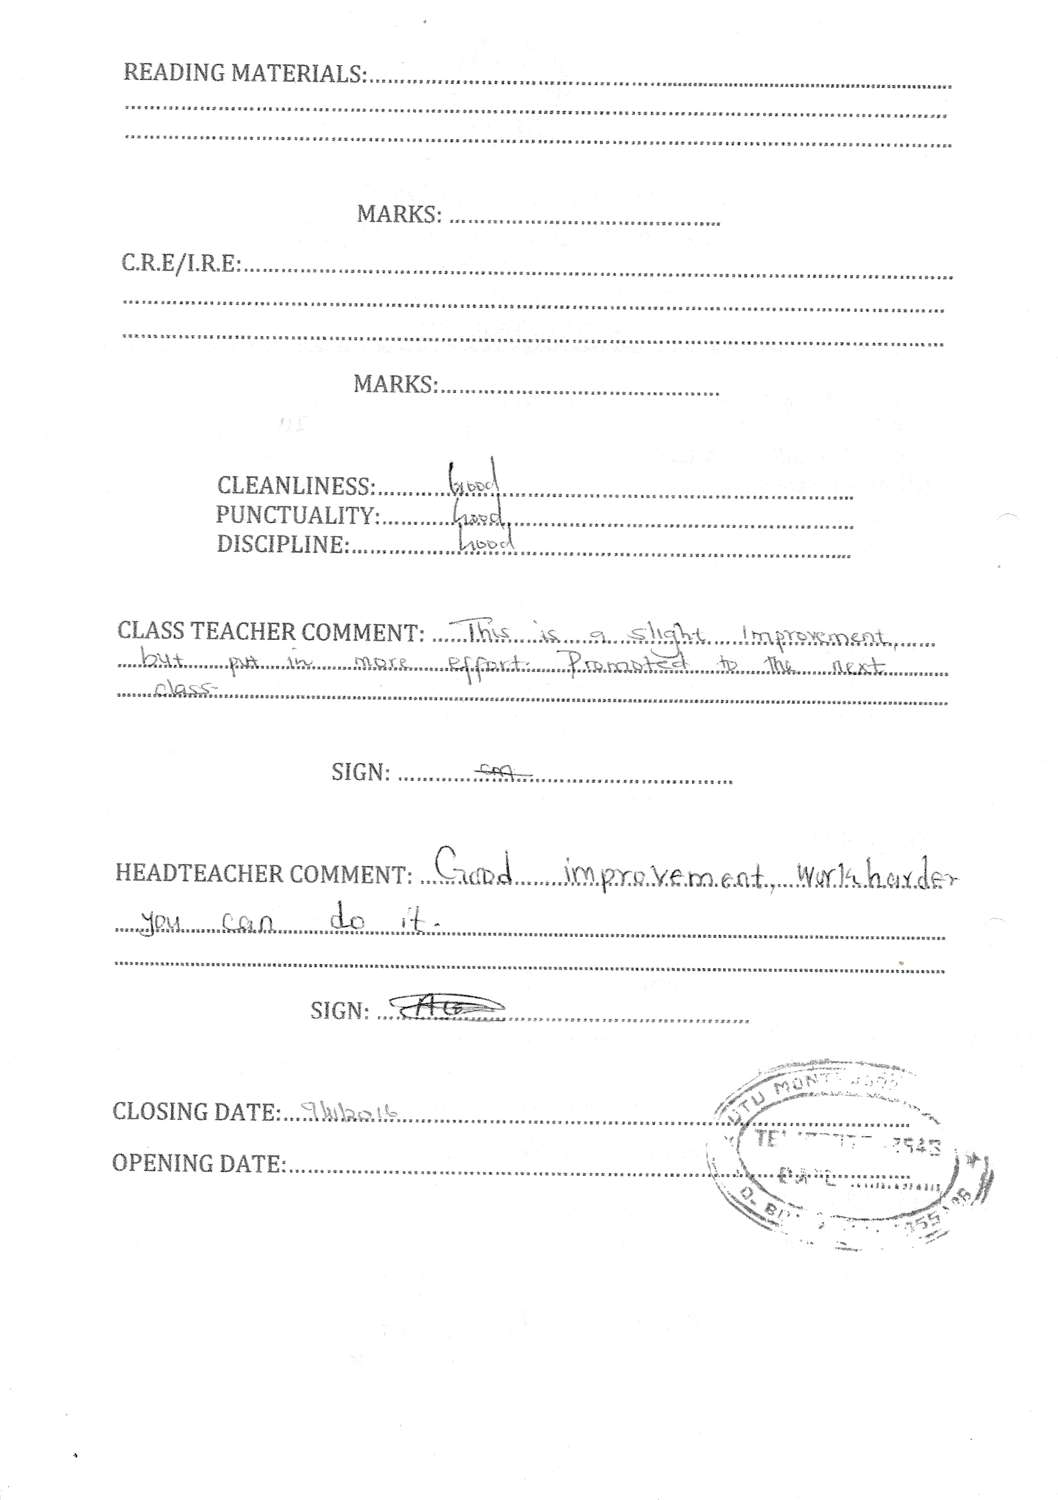 READING MATERIALS:
MARKS:
C.R.E/I.R.E:
MARKS:
CLEANLINESS: Good
PUNCTUALITY: Good
DISCIPLINE: Good
CLASS TEACHER COMMENT: This is a slight improvement,
but put in more effort. Promoted to the next
class.
SIGN:
HEADTEACHER COMMENT: Good improvement, work harder
you can do it.
SIGN:
CLOSING DATE: 9/11/2016
OPENING DATE: